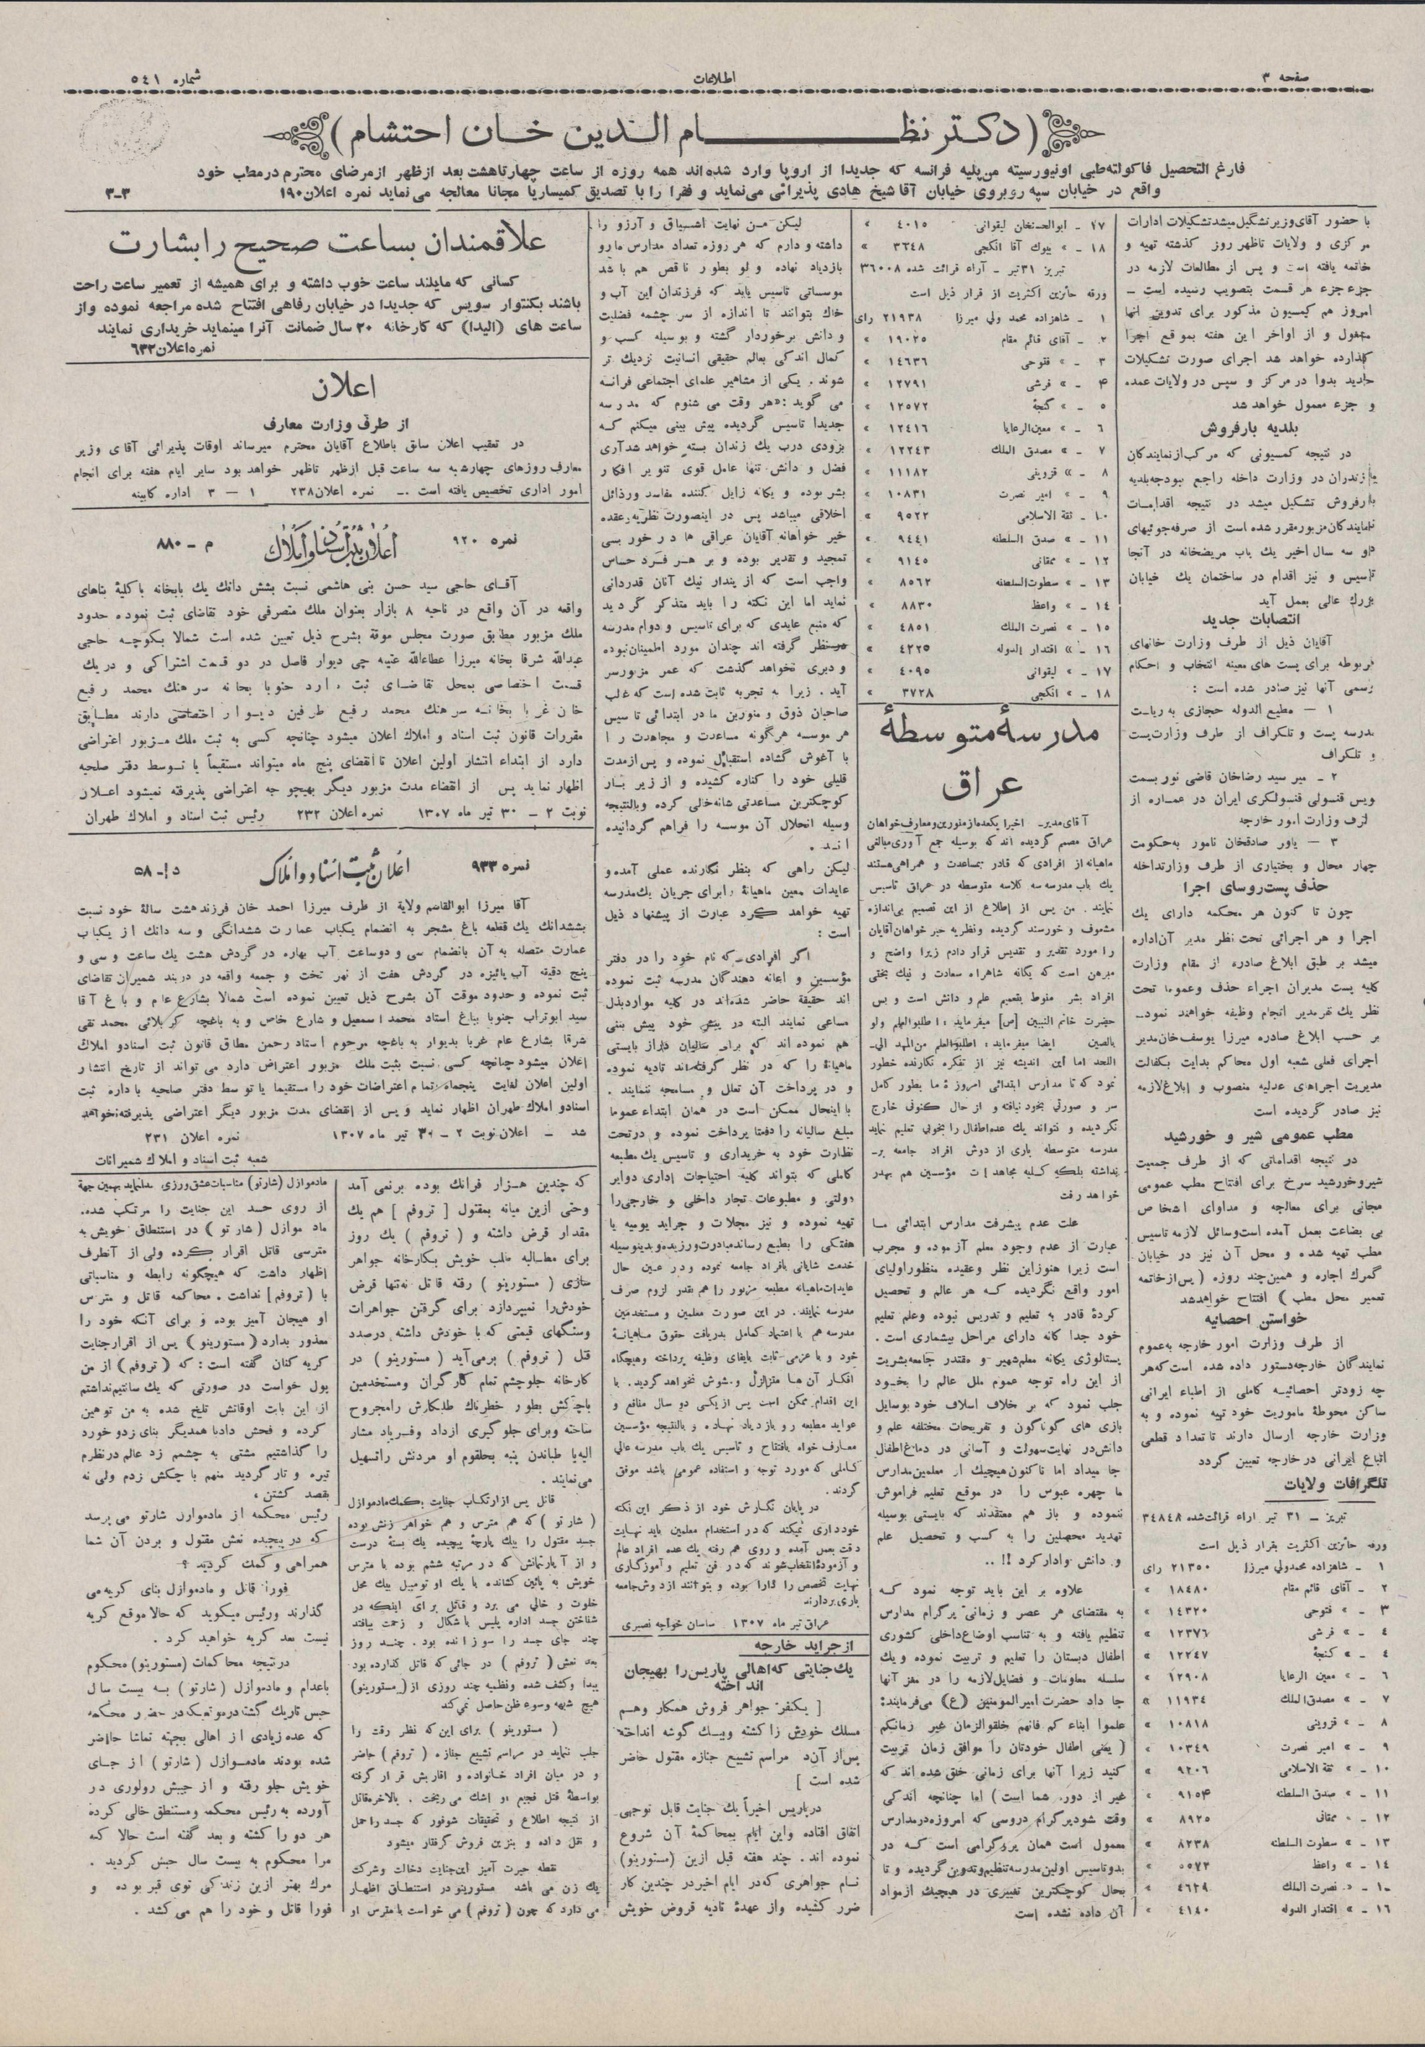 صفحه ۳
اطلاعات
شماره ٥٤١
(دکتر نظام الدین خان احتشام)
فارغ التحصیل فاکولته‌طبی اونیورسیته من‌پلیه فرانسه که جدیدا از اروپا وارد شده‌اند همه روزه از ساعت چهارتاهشت بعد ازظهر ازمرضای محترم درمطب خود
واقع در خیابان سپه روبروی خیابان آقاشیخ هادی پذیرائی می‌نماید و فقرا را با تصدیق کمیساریا مجانا معالجه می‌نماید نمره اعلان۱۹۰
۳ـ۳
با حضور آقای وزیر تشکیل میشد تشکیلات ادارات
مرکزی و ولایات تاظهر روز گذشته تهیه و
خاتمه یافته است و پس از مطالعات لازمه در
جزء جزء هر قسمت بتصویب رسیده است ـ
امروز هم کمیسیون مذکور برای تدوین آنها
مشغول و از اواخر این هفته بموقع اجرا
گذارده خواهد شد اجرای صورت تشکیلات
جدید بدوا در مرکز و سپس در ولایات عمده
و جزء معمول خواهد شد
بلدیه بارفروش
در نتیجه کمسیونی که مرکب از نمایندگان
مازندران در وزارت داخله راجع ببودجه بلدیه
بارفروش تشکیل میشد در نتیجه اقدامات
نمایندگان مزبور مقرر شده است از صرفه جوئیهای
دو سه سال اخیر یك باب مریضخانه در آنجا
تاسیس و نیز اقدام در ساختمان یك خیابان
بزرك عالی بعمل آید
انتصابات جدید
آقایان ذیل از طرف وزارت خانهای
مربوطه برای پست های معینه انتخاب و احکام
رسمی آنها نیز صادر شده است :
۱ ـ مطیع الدوله حجازی به ریاست
مدرسه پست و تلگراف از طرف وزارت پست
و تلگراف
۲ ـ میر سید رضاخان قاضی نور بسمت
ویس قنسولی قنسولگری ایران در عماره از
طرف وزارت امور خارجه
۳ ـ یاور صادقخان مامور به حکومت
چهار محال و بختیاری از طرف وزارتداخله
حذف پست روسای اجرا
چون تا کنون هر محکمه دارای یك
اجرا و هر اجرائی تحت نظر مدیر آن اداره
میشد بر طبق ابلاغ صادره از مقام وزارت
کلیه پست مدیران اجراء حذف وعموما تحت
نظر یك نفر مدیر انجام وظیفه خواهند نمود ـ
بر حسب ابلاغ صادره میرزا یوسف خان مدیر
اجرای فعلی شعبه اول محاکم بدایت بکفالت
مدیریت اجراهای عدلیه منصوب و ابلاغ لازمه
نیز صادر گردیده است
مطب عمومی شیر و خورشید
در نتیجه اقداماتی که از طرف جمعیت
شیروخورشید سرخ برای افتتاح مطب عمومی
مجانی برای معالجه و مداوای اشخاص
بی بضاعت بعمل آمده است وسائل لازمه تاسیس
مطب تهیه شده و محل آن نیز در خیابان
گمرك اجاره و همین چند روزه ( پس ازخاتمه
تعمیر محل مطب ) افتتاح خواهدشد
خواستن احصائیه
از طرف وزارت امور خارجه به عموم
نمایندگان خارجه دستور داده شده است که هر
چه زودتر احصائیه کاملی از اطباء ایرانی
ساکن محوطهٔ ماموریت خود تهیه نموده و به
وزارت خارجه ارسال دارند تا تعداد قطعی
اتباع ایرانی در خارجه تعیین گردد
تلگرافات ولایات
تبریز ـ ۳۱ تیر آراء قرائت شده ۳٤۸٤۸
ورقه حائزین اکثریت بقرار ذیل است
۱ ـ شاهزاده محمدولی میرزا ۲۱۳٥۰ رای
۲ ـ آقای قائم مقام ۱۸٤۸۰ »
۳ ـ » فتوحی ۱٤۳۲۰ »
٤ ـ » فرشی ۱۲۳۷٦ »
٤ ـ » گنجهٔ ۱۲۲٤۷ »
٦ ـ » معین الرعایا ۱۲۹۰۸ »
۷ ـ » مصدق الملك ۱۱۹۳٤ »
۸ ـ » قزوینی ۱۰۸۱۸ »
۹ ـ » امیر نصرت ۱۰۳٤۹ »
۱۰ ـ » ثقة الاسلامی ۹۲۰٦ »
۱۱ ـ » صدق السلطنه ۹۱٥۴ »
۱۲ ـ » ممقانی ۸۹۲٥ »
۱۳ ـ » سطوت السلطنه ۸۲۳۸ »
۱٤ ـ » واعظ ٥٥۷۲ »
ـ۱ ـ » نصرت الملك ٤٦۲۹ »
۱٦ ـ » اقتدار الدوله ٤۱٤۰ »
۱۷ ـ ابوالحسنخان لیقوانی ٤۰۱٥ »
۱۸ ـ » بیوك آقا انگجی ۳٦٤۸ »
تبریز ۳۱تیر ـ آراء قرائت شده ۳٦۰۰۸
ورقه حائزین اکثریت از قرار ذیل است
۱ ـ شاهزاده محمد ولی میرزا ۲۱۹۳۸ رای
۲ ـ آقای قائم مقام ۱۹۰۲٥ »
۳ ـ » فتوحی ۱٤٦۳٦ »
۴ ـ » فرشی ۱۲۷۹۱ »
٥ ـ » گنجهٔ ۱۲٥۷۲ »
٦ ـ » معین الرعایا ۱۲٤۱٦ »
۷ ـ » مصدق الملك ۱۲۲٤۳ »
۸ ـ » قزوینی ۱۱۱۸۲ »
۹ ـ » امیر نصرت ۱۰۸۳۱ »
۱۰ ـ ثقة الاسلامی ۹٥۲۲ »
۱۱ ـ » صدق السلطنه ۹٤٤۱ »
۱۲ ـ » ممقانی ۹۱٤٥ »
۱۳ ـ » سطوت السلطنه ۸٥٦۲ »
۱٤ ـ » واعظ ۸۸۳۰ »
۱٥ ـ » نصرت الملك ٤۸٥۱ »
۱٦ ـ » اقتدار الدوله ٤۲۲٥ »
۱۷ ـ » لیقوانی ٤۰۹٥ »
۱۸ ـ » انگجی ۳۷۲۸ »
مدرسهٔ متوسطهٔ
عراق
آقای مدیر ـ اخیرا یکعده از منورین و معارف خواهان
عراق مصمم گردیده اند که بوسیله جمع آوری مبالغی
ماهیانه از افرادی که قادر بمساعدت و همراهی هستند
یك باب مدرسه سه کلاسه متوسطه در عراق تاسیس
نمایند . من پس از اطلاع از این تصمیم بی اندازه
مشعوف و خورسند گردیده ونظریه خیر خواهان آقایان
را مورد تقدیر و تقدیس قرار دادم زیرا واضح و
مبرهن است که یگانه شاهراه سعادت و نیك بختی
افراد بشر منوط بتعمیم علم و دانش است و بس
حضرت خاتم النبیین [ص] میفرماید : اطلبوالعلم ولو
بالصین ایضا میفرماید : اطلبوالعلم من المهد الی ـ
اللحد اما این اندیشه نیز از تفکره نگارنده خطور
نمود که تا مدارس ابتدائی امروزهٔ ما بطور کامل
سر و صورتی بخود نیافته و از حال کنونی خارج
نگردیده و نتواند یك عده اطفال را بخوبی تعلیم نماید
مدرسه متوسطه باری از دوش افراد جامعه بر ـ
نداشته بلکه کلیه مجاهدات مؤسسین هم بهدر
خواهد رفت
علت عدم پیشرفت مدارس ابتدائی ما
عبارت از عدم وجود معلم آزموده و مجرب
است زیرا هنوز این نظر وعقیده منظور اولیای
امور واقع نگردیده که هر عالم و تحصیل
کردهٔ قادر به تعلیم و تدریس نبوده وعلم تعلیم
خود جدا گانه دارای مراحل بیشماری است .
پستالوزی یگانه معلم شهیر و مقتدر جامعه بشریت
از این راه توجه عموم ملل عالم را بخود
جلب نمود که بر خلاف اسلاف خود بوسایل
بازی های گوناگون و تفریحات مختلفه علم و
دانش در نهایت سهولت و آسانی در دماغ اطفال
جا میداد اما تاکنون هیچیك از معلمین مدارس
ما چهره عبوس را در موقع تعلیم فراموش
ننموده و باز هم معتقدند که بایستی بوسیله
تهدید محصلین را به کسب و تحصیل علم
و دانش وادارکرد !! ..
علاوه بر این باید توجه نمود که
به مقتضای هر عصر و زمانی پرگرام مدارس
تنظیم یافته و به تناسب اوضاع داخلی کشوری
اطفال دبستان را تعلیم و تربیت نموده و یك
سلسله معلومات و فضایل لازمه را در مغز آنها
جا داد حضرت امیر المومنین (ع) می فرمایند :
علموا ابناء کم فانهم خلقوا الزمان غیر زمانکم
( یعنی اطفال خودتان را موافق زمان تربیت
کنید زیرا آنها برای زمانی خلق شده اند که
غیر از دوره شما است ) اما چنانچه اندکی
وقت شود پرگرام دروسی که امروزه در مدارس
معمول است همان پروگرامی است که در
بدو تاسیس اولین مدرسه تنظیم و تدوین گردیده و تا
بحال کوچکترین تغییری در هیچیك از مواد
آن داده نشده است
لیکن من نهایت اشتیاق و آرزو را
داشته و دارم که هر روزه تعداد مدارس ما رو
بازدیاد نهاده و لو بطور ناقص هم باشد
موسساتی تاسیس یابد که فرزندان این آب و
خاك بتوانند تا اندازه از سر چشمه فضلیت
و دانش برخوردار گشته و بوسیله کسب و
کمال اندکی بعالم حقیقی انسانیت نزدیك تر
شوند . یکی از مشاهیر علمای اجتماعی فرانسه
می گوید : «هر وقت می شنوم که مدرسه
جدیدا تاسیس گردیده پیش بینی میکنم که
بزودی درب یك زندان بسته خواهد شد آری
فضل و دانش تنها عامل قوی تنویر افکار
بشر بوده و یگانه زایل کننده مفاسد ورذائل
اخلاقی میباشد پس در اینصورت نظریه و عقده
خیر خواهانه آقایان عراقی ها در خور بسی
تمجید و تقدیر بوده و بر هر فرد حساس
واجب است که از پندار نیك آنان قدردانی
نماید اما این نکته را باید متذکر گردید
که منبع عایدی که برای تاسیس و دوام مدرسه
در نظر گرفته اند چندان مورد اطمینان نبوده
و دیری نخواهد گذشت که عمر مزبور سر
آید . زیرا به تجربه ثابت شده است که غالب
صاحبان ذوق و منورین ما در ابتدائی تاسیس
هر موسسه هرگونه مساعدت و مجاهدت را
با آغوش گشاده استقبال نموده و پس از مدت
قلیلی خود را کناره کشیده و از زیر بار
کوچکترین مساعدتی شانه خالی کرده وبالنتیجه
وسیله انحلال آن موسسه را فراهم گردانیده
اند .
لیکن راهی که بنظر نگارنده عملی آمده و
عایدات معین ماهیانهٔ را برای جریان یك مدرسه
تهیه خواهد کرد عبارت از پیشنهاد ذیل
است :
اگر افرادی که نام خود را در دفتر
مؤسسین و اعانه دهندگان مدرسه ثبت نموده
اند حقیقة حاضر شده اند در کلیه موارد بذل
مساعی نمایند البته در پیش خود پیش بینی
هم نموده اند که برای سالیان دراز بایستی
ماهیانهٔ را که در نظر گرفته اند تادیه نموده
و در پرداخت آن تعلل و مسامحه ننمایند .
با اینحال ممکن است در همان ابتداء عموما
مبلغ سالیانه را دفعتا پرداخت نموده و درتحت
نظارت خود به خریداری و تاسیس یك مطبعه
کاملی که بتواند کلیه احتیاجات اداری دوایر
دولتی و مطبوعات تجار داخلی و خارجی را
تهیه نموده و نیز مجلات و جراید یومیه یا
هفتگی را بطبع رساند مبادرت ورزیده و بدینوسیله
خدمت شایانی بافراد جامعه نموده و در عین حال
عایدات ماهیانه مطبعه مزبور را هم بقدر لزوم صرف
مدرسه نمایند . در این صورت معلمین و مستخدمین
مدرسه هم با اعتماد کامل بدریافت حقوق ماهیانهٔ
خود و با عزمی ثابت بایفای وظیفه پرداخته وهیچگاه
افکار آن ها متزلزل و مشوش نخواهد گردید . با
این اقدام ممکن است پس از یکی دو سال منافع و
عواید مطبعه رو بازدیاد نهاده و بالنتیجه مؤسسین
معارف خواه بافتتاح و تاسیس یك باب مدرسه عالی
کاملی که مورد توجه و استفاده عمومی باشد موفق
گردند .
در پایان نگارش خود از ذکر این نکته
خودداری نمیکند که در استخدام معلمین باید نهایت
دقت بعمل آمده و روی هم رفته یك عده افراد عالم
و آزمودهٔ انتخاب شوند که در فن تعلیم و آموزگاری
نهایت تخصص را دارا بوده و بتوانند از دوش جامعه
باری بردارند
عراق تیر ماه ۱۳۰۷ ساسان خواجه نصیری
از جراید خارجه
یك جنایتی که اهالی پاریس را بهیجان
انداخته
[ یکنفر جواهر فروش همکار وهم
مسلك خودش را کشته وبیك گوشه انداخته
پس از آن در مراسم تشییع جنازه مقتول حاضر
شده است ]
در پاریس اخیراً یك جنایت قابل توجهی
اتفاق افتاده و این ایام بمحاکمهٔ آن شروع
نموده اند . چند هفته قبل ازین (مستورینو)
نام جواهری که در ایام اخیر در چندین کار
ضرر کشیده و از عهدهٔ تادیه قروض خویش
علاقمندان بساعت صحیح را بشارت
کسانی که مایلند ساعت خوب داشته و برای همیشه از تعمیر ساعت راحت
باشند بکنتوار سویس که جدیدا در خیابان رفاهی افتتاح شده مراجعه نموده و از
ساعت های (الیدا) که کارخانه ۲۰ سال ضمانت آنرا مینماید خریداری نمایند
نمره اعلان٦۳۲
اعلان
از طرف وزارت معارف
در تعقیب اعلان سابق باطلاع آقایان محترم میرساند اوقات پذیرائی آقای وزیر
معارف روزهای چهارشبه سه ساعت قبل ازظهر تاظهر خواهد بود سایر ایام هفته برای انجام
امور اداری تخصیص یافته است ـ نمره اعلان۲۳۸ ۱ ـ ۳ اداره کابینه
نمره ۹۲۰
اعلان ثبت اسناد و املاك
م ـ ۸۸۰
آقای حاجی سید حسن بنی هاشمی نسبت بشش دانك یك بابخانه باکلیهٔ بناهای
واقعه در آن واقع در ناحیه ۸ بازار بعنوان ملك متصرفی خود تقاضای ثبت نموده حدود
ملك مزبور مطابق صورت مجلس موقة بشرح ذیل تعیین شده است شمالا بکوچه حاجی
عبدالله شرقا بخانه میرزا عطاءالله عتیقه چی دیوار فاصل در دو قسمت اشتراکی و در یك
قسمت اختصاصی بمحل تقاضای ثبت دارد جنوبا بخانه سرهنك محمد رفیع
خان غربا بخانه سرهنك محمد رفیع طرفین دیوار اختصاصی دارند مطابق
مقررات قانون ثبت اسناد و املاك اعلان میشود چنانچه کسی به ثبت ملك مزبور اعتراضی
دارد از ابتداء انتشار اولین اعلان تا انقضای پنج ماه میتواند مستقیماً یا توسط دفتر صلحیه
اظهار نماید پس از انقضاء مدت مزبور دیگر بهیچوجه اعتراضی پذیرفته نمیشود اعلان
نوبت ۲ ـ ۳۰ تیر ماه ۱۳۰۷ نمره اعلان ۲۳۲ رئیس ثبت اسناد و املاك طهران
نمره ۹۳۳
اعلان ثبت اسناد و املاك
د ـ ٥۸
آقا میرزا ابوالقاسم ولایة از طرف میرزا احمد خان فرزند هشت سالهٔ خود نسبت
بششدانك یك قطعه باغ مشجر به انضمام یکباب عمارت ششدانگی و سه دانك از یکباب
عمارت متصله به آن بانضمام سی و دوساعت آب بهاره در گردش هشت یك ساعت و سی و
پنج دقیقه آب پائیزه در گردش هفت از نهر تخت و جمعه واقعه در دربند شمیران تقاضای
ثبت نموده و حدود موقت آن بشرح ذیل تعیین نموده است شمالا بشارع عام و باغ آقا
سید ابوتراب جنوبا بباغ استاد محمد اسمعیل و شارع خاص و به باغچه کربلائی محمد تقی
شرقا بشارع عام غربا بدیوار به باغچه مرحوم استاد رحمن مطابق قانون ثبت اسناد و املاك
اعلان میشود چنانچه کسی نسبت بثبت ملك مزبور اعتراض دارد می تواند از تاریخ انتشار
اولین اعلان لغایت پنجماه تمام اعتراضات خود را مستقیما یا توسط دفتر صلحیه با داره ثبت
اسناد و املاك طهران اظهار نماید و پس از انقضای مدت مزبور دیگر اعتراضی پذیرفته نخواهد
شد ـ اعلان نوبت ۲ ـ ۳۰ تیر ماه ۱۳۰۷ نمره اعلان ۲۳۱
شعبه ثبت اسناد و املاك شمیرانات
که چندین هزار فرانك بوده برنمی آمد
وحتی ازین میانه بمقتول [ تروفم ] هم یك
مقدار قرض داشته و ( تروفم ) یك روز
برای مطالبه طلب خویش بکارخانه جواهر
سازی ( مستورینو ) رفته قاتل نه تنها قرض
خودش را نمیپردازد برای گرفتن جواهرات
وسنگهای قیمتی که با خودش داشته درصدد
قتل ( تروفم ) برمی آید ( مستورینو ) در
کارخانه جلوچشم تمام کارگران ومستخدمین
باچکش بطور خطرناك طلبکارش را مجروح
ساخته وبرای جلو گیری ازداد و فریاد مشار
الیه با طپاندن پنبه بحلقوم او مردنش را تسهیل
می نمایند .
قاتل پس از ارتکاب جنایت بکمك مادموازل
( شارتو ) که هم مترس و هم خواهر زنش بوده
جسد مقتول را بیك پارچه پیچیده یك بستهٔ درست
و از آپارتمانش که در مرتبه ششم بوده با مترس
خویش به پائین کشانده با یك اوتومبیل بیك محل
خلوت و خالی می برد و قاتل برای اینکه در
شناختن جسد اداره پلیس با شکال و زحمت بیافتد
چند جای جسد را سوزانده بود . چند روز
بعد نعش ( تروفم ) در جائی که قاتل گذارده بود
پیدا وکشف شده و نظمیه چند روزی از ( مستورینو )
هیچ شبهه وسوء ظن حاصل نمی کند
( مستورینو ) برای این که نظر رقت را
جلب نماید در مراسم تشییع جنازه ( تروفم ) حاضر
و در میان افراد خانواده و اقاربش قرار گرفته
بواسطهٔ قتل فجیع او اشك می ریخت . بالاخره قاتل
از نتیجه اطلاع و تحقیقات شوفور که جسد را حمل
و نقل داده و بنزین فروش گرفتار میشود
نقطه حیرت آمیز این جنایت دخالت وشرکت
یك زن می باشد مستورینو در استنطاق اظهار
می دارد که چون (تروفم) می خواست با مترس او
مادموازل (شارتو) مناسبات عشق ورزی پیدا نماید بهمین جهة
از روی حسد این جنایت را مرتکب شده .
مادموازل ( شارتو ) در استنطاق خویش به
مترسی قاتل اقرار کرده ولی از آنطرف
اظهار داشت که هیچگونه رابطه و مناسباتی
با ( تروفم ] نداشت . محاکمه قاتل و مترس
او هیجان آمیز بوده و برای آنکه خود را
معذور بدارد ( مستورینو ) پس از اقرار جنایت
گریه کنان گفته است : که ( تروفم ) از من
پول خواست در صورتی که یك سانتیم نداشتم
از این بابت اوقاتش تلخ شده به من توهین
کرده و فحش دادبا همدیگر بنای زدو خورد
را گذاشتیم مشتی به چشمم زد عالم در نظرم
تیره و تار گردید منهم با چکش زدم ولی نه
بقصد کشتن ،
رئیس محکمه از مادموازل شارتو می پرسد
که در پیچیده نعش مقتول و بردن آن شما
همراهی و کمك کردید ؟
فورا قاتل و مادموازل بنای گریه می
گذارند ورئیس میگوید که حالا موقع گریه
نیست بعد گریه خواهید کرد .
در نتیجه محاکمات (مستورینو) محکوم
باعدام و مادموازل ( شارتو ) به بیست سال
حبس تاریك گشت در موقعیکه در حضور محکمه
که عده زیادی از اهالی بجهته تماشا حاضر
شده بودند مادموازل ( شارتو ) از جای
خویش جلو رفته و از جیبش رولوری در
آورده به رئیس محکمه و مستنطق خالی کرده
هر دو را کشته و بعد گفته است حالا که
مرا محکوم به بیست سال حبس کردید .
مرك بهتر ازین زندگی توی قبر بوده و
فورا قاتل و خود را هم می کشد .